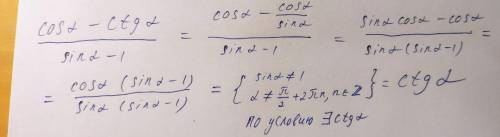 (cosα − ctgα)/(sinα − 1) = (cosα − cosα/sinα)/(sinα − 1) = (sinα cosα − cosα)/(sinα (sinα − 1)) =
= (cosα (sinα − 1))/(sinα (sinα − 1)) = { sinα ≠ 1
α ≠ π/2 + 2πn, n∈Z } = ctgα
по условию ∃ctgα